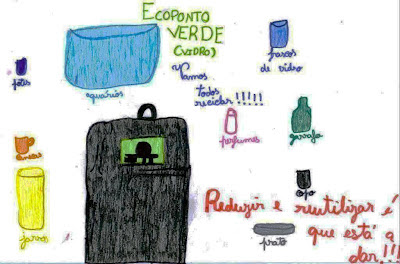 ECOPONTO
VERDE
(VIDRO)
Vamos
todos
reciclar !!!!!
frascos
de vidro
potes
aquários
perfumes
garrafa
canecas
copo
jarros
prato
Reduzir e reutilizar é
que está a
dar!!!